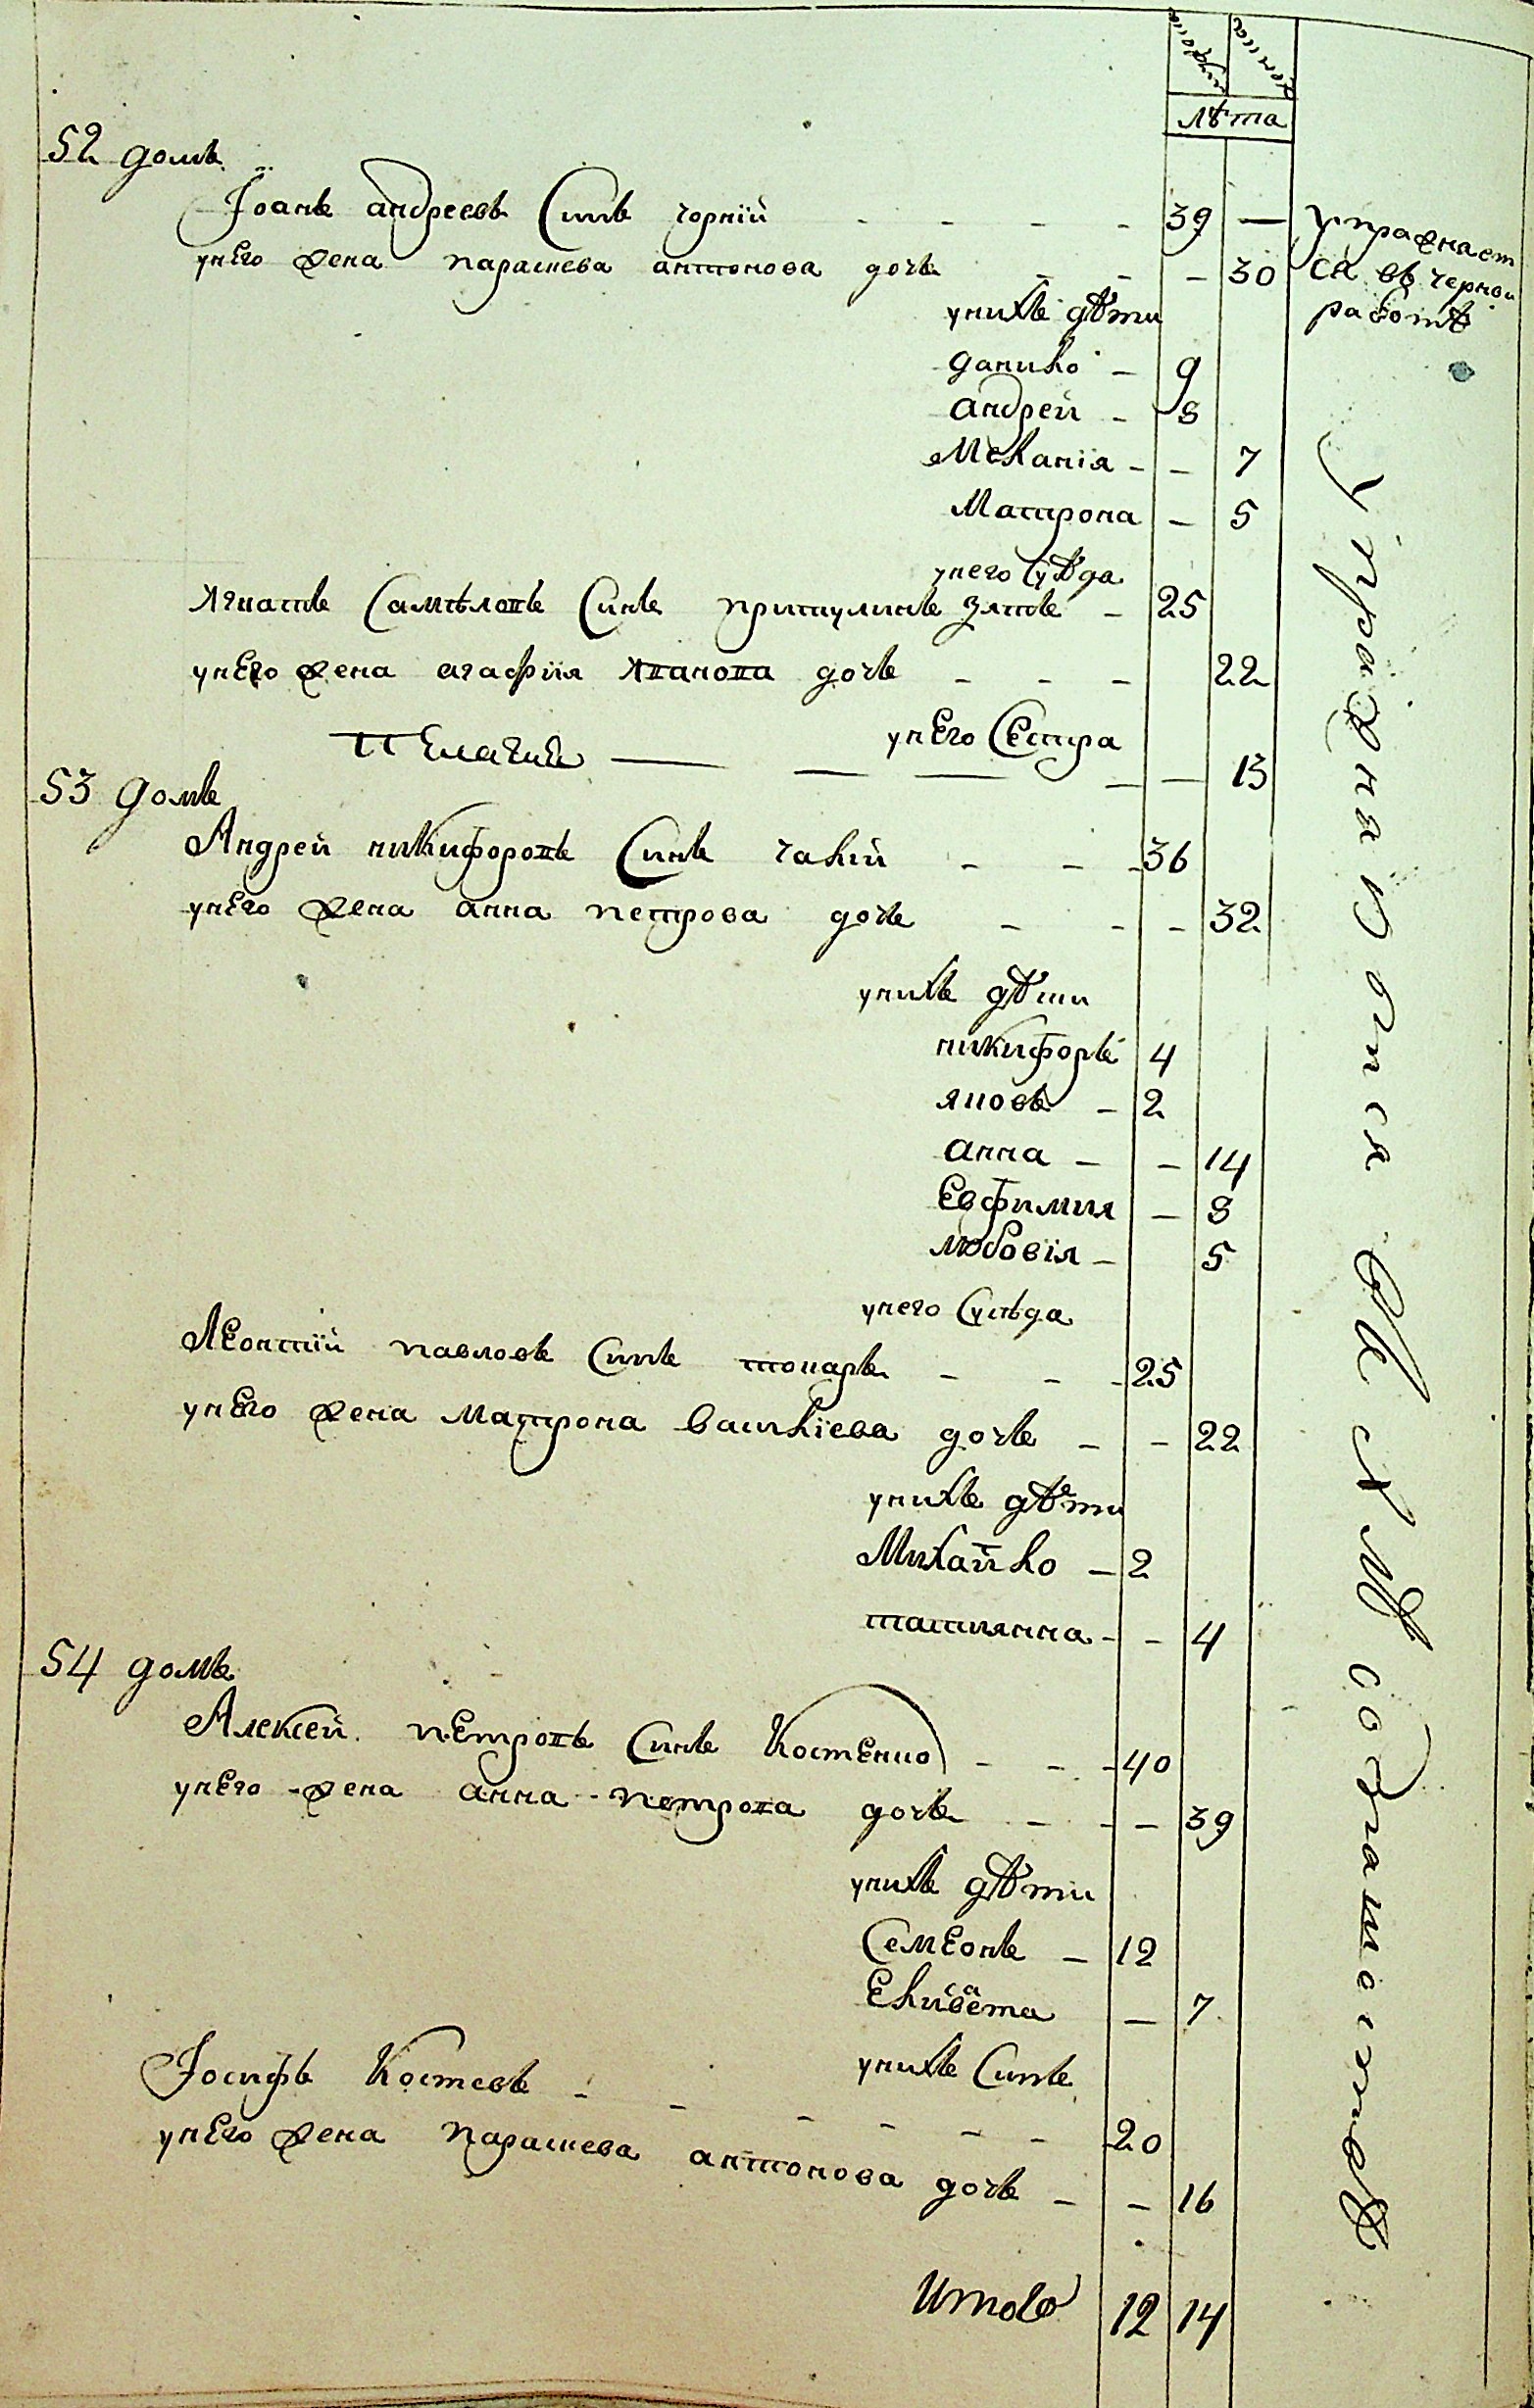 мужска женска
лѣта
52 домъ
Іоанъ андреевъ Синъ чорній - - - - 39 — упражнает
унего жена параскева антонова дочь - - - 30 ся въ чернои
унихъ дѣти работѣ
данило - 9
андрей - 8
Меланія - - 7
Матрона - 5
унего сусѣда
Игнатъ Самѣловъ Синъ притулинъ зять - 25
унего жена агафия Иванова дочь - - - 22
унего Сестра
Пелагия — — — — — 13
53 Домъ
Андрей никифоровъ Синъ чалий - - - 36
унего жена анна петрова дочь - - - 32
унихъ дѣти
никифоръ 4
яковъ - 2
анна - - 14
Евфимия - 8
любовія - 5
унего Сусѣда
Леонтій павловъ Синъ токарь - - - 25
унего жена Матрона василіева дочь - - 22
унихъ дѣти
Михайло - 2
татиянна - - 4
54 домъ
Алексей петровъ Синъ Костенко - - - 40
унего жена анна петрова дочь - - - 39
унихъ дѣти
Семеонъ - 12
Елисавета - 7
унихъ Синъ
Іосифъ Костевъ - - - - - - 20
унего жена параскева антонова дочь - - 16
Итого 12 14
упражнаются